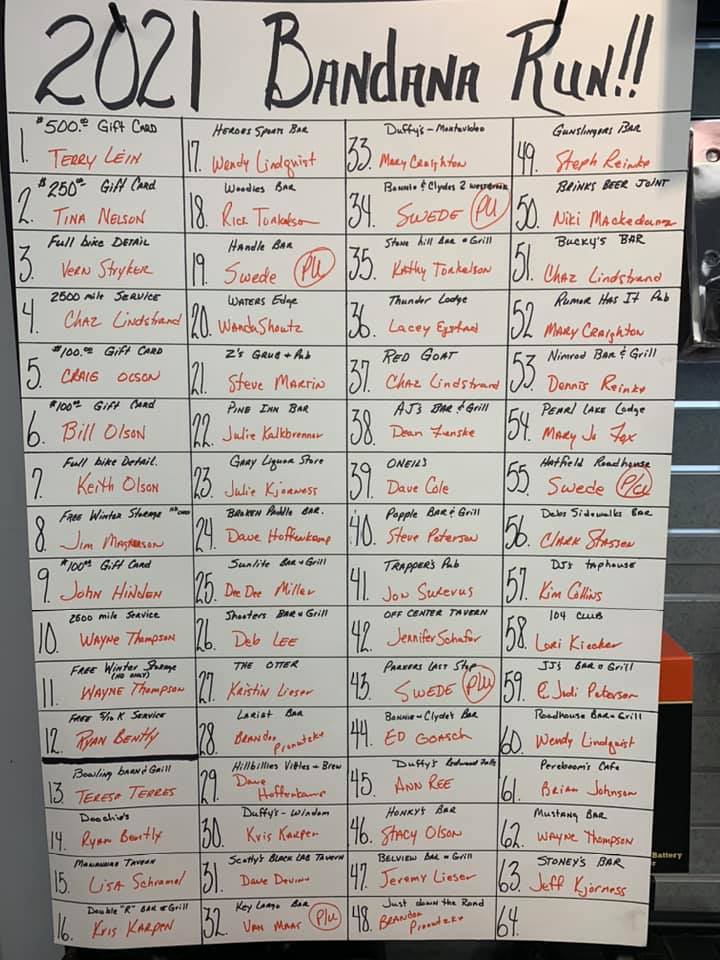 2021 Bandana Run!!
1. $500.00 Gift Card
Terry Lein
2. $250.00 Gift Card
Tina Nelson
3. Full bike Detail
Vern Stryker
4. 2500 mile Service
Chaz Lindstrand
5. $100.00 Gift Card
Craig Olson
6. $100.00 Gift Card
Bill Olson
7. Full bike Detail.
Keith Olson
8. Free Winter Storage
Jim Masterson
9. $100.00 Gift Card
John Hinnen
10. 2500 mile Service
Wayne Thompson
11. Free Winter Storage
(HD only)
Wayne Thompson
12. Free 5/10 K Service
Ryan Bently
13. Bowling barn & Grill
Tereso Terres
14. Doochie's
Ryan Bently
15. Tavern
Lisa Schramel
16. Double "R" Bar & Grill
Kris Karpen
17. Heroes Sports Bar
Wendy Lindquist
18. Woodies Bar
Rick Torkelson
19. Handle Bar
Swede P/U
20. Waters Edge
Wanda Shoutz
21. Z's Grub + Pub
Steve Martin
22. Pine Inn Bar
Julie Kalkbrenner
23. Gary Liquor Store
Julie Kjorness
24. Broken Paddle Bar.
Dave Hoffenkamp
25. Sunlite Bar & Grill
Dee Dee Miller
26. Shooters Bar & Grill
Deb Lee
27. The Otter
Kristin Lieser
28. Lariat Bar
Brandon
29. Hillbillies Vittles + Brew
Dave
Hoffenkamp
30. Duffy's - Windom
Kris Karpen
31. Scotty's Black Lab Tavern
Dave Devine
32. Key Largo Bar
Van Maas P/U
33. Duffy's - Montevideo
Mary Craighton
34. Bonnie & Clydes 2
Swede P/U
35. Stone hill Bar & Grill
Kathy Torkelson
36. Thunder Lodge
Lacey
37. Red Goat
Chaz Lindstrand
38. AJ's Bar & Grill
Dean Zenske
39. Oneil's
Dave Cole
40. Popple Bar & Grill
Steve Peterson
41. Trapper's Pub
Jon Surevus
42. Off Center Tavern
Jennifer Schafer
43. Parkers Last Stop
Swede P/U
44. Bonnie & Clyde's Bar
Ed Goasch
45. Duffy's Redwood Falls
Ann Ree
46. Honky's Bar
Stacy Olson
47. Belview Bar & Grill
Jeremy Lieser
48. Just down the Road
Brandon
49. Gunslingers Bar
Steph Reinke
50. Brinks Beer Joint
Niki Mackedanz
51. Bucky's Bar
Chaz Lindstrand
52. Rumor Has It Pub
Mary Craighton
53. Nimrod Bar & Grill
Dennis Reinke
54. Pearl Lake Lodge
Mary Jo Fox
55. Hatfield Roadhouse
Swede P/U
56. Debs Sidewalks Bar
Clark Stasson
57. DJ's taphouse
Kim Collins
58. 104 Club
Lori Kiecker
59. JJ's Bar & Grill
C. Judi Peterson
60. Roadhouse Bar & Grill
Wendy Lindquist
61. Pereboom's Cafe
Brian Johnson
62. Mustang Bar
Wayne Thompson
63. Stoney's Bar
Jeff Kjorness
64.
Battery